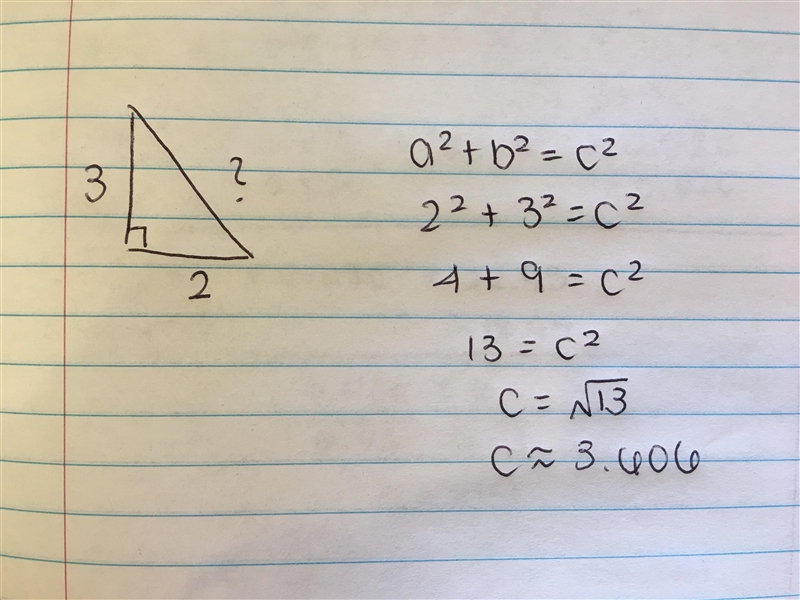 3
?
2
a² + b² = c²
2² + 3² = c²
4 + 9 = c²
13 = c²
c = √13
c ≈ 3.606